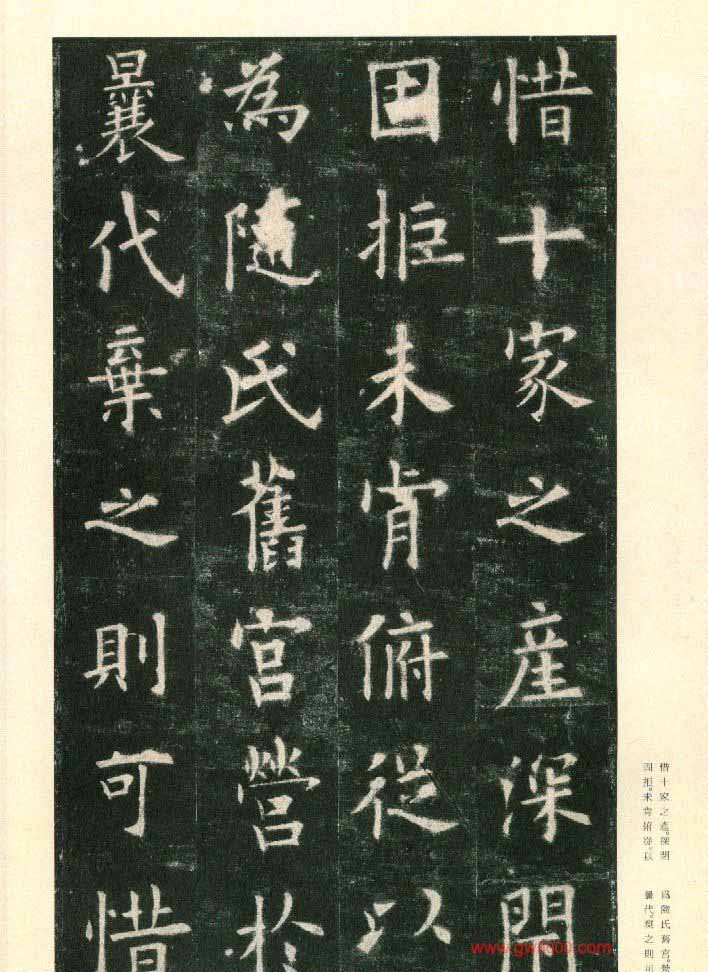 惜十家之産深閇
固拒未肯俯從以
為隨氏舊宮營於
曩代棄之則可惜
惜十家之產。深閉
固拒。未肯俯從。以
爲隨氏舊宮。營
曩代。棄之則可